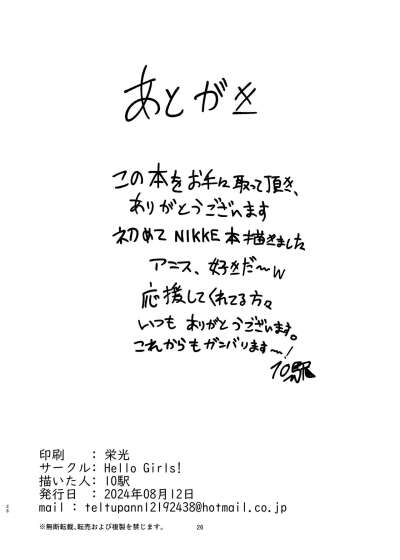 あとがき
この本をお手に取って頂き、
ありがとうございます
初めてNIKKE本描きました
アニス、好きだ〜w
応援してくれてる方々
いつもありがとうございます。
これからもガンバります〜!
10駅
印刷 : 栄光
サークル: Hello Girls!
描いた人: 10駅
発行日 : 2024年08月12日
mail : teltupann12192438@hotmail.co.jp
※無断転載、転売および複製を禁じます。
26